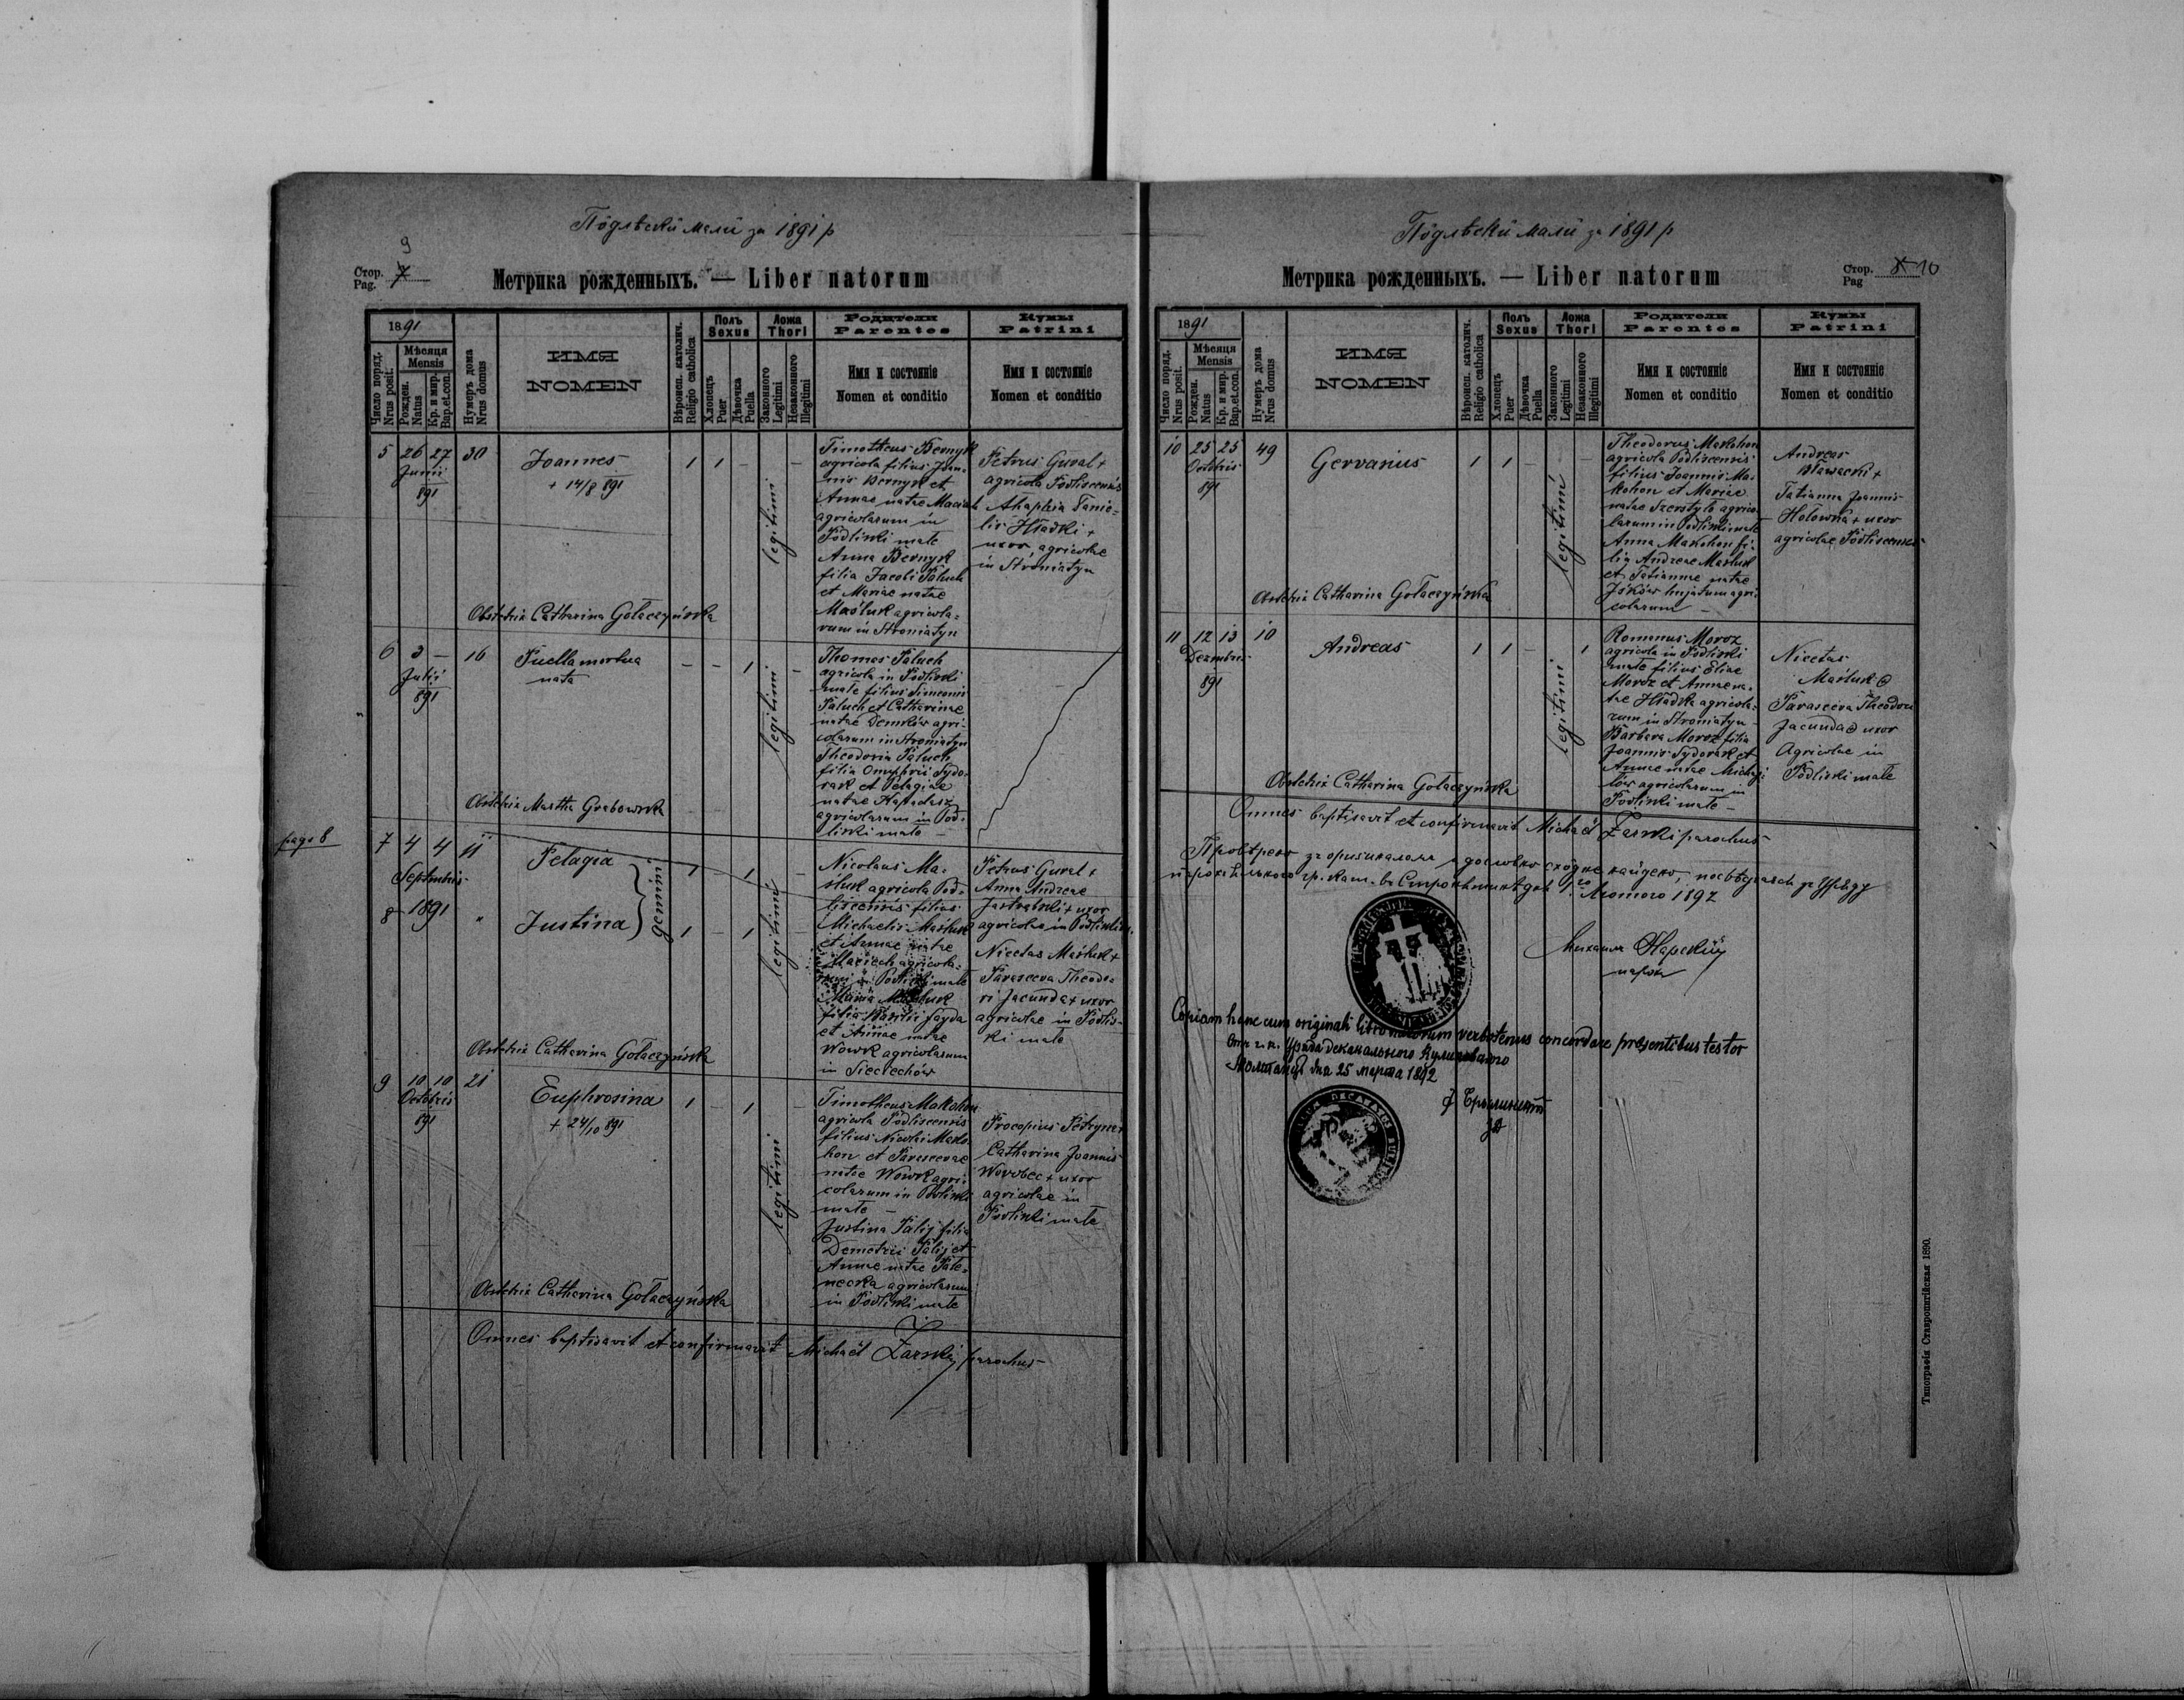 Подлѣски малй за 1891 р
9
Стор. 7
Pag.
Метрика рожденныхъ. — Liber natorum
1891
Число поряд.
Nrus posit.
Мѣсяця
Mensis
Рожден.
Natus
Кр. и мир.
Bap.et.con.
Нумеръ дома
Nrus domus
ИМЯ
NOMEN
Вѣроисп. католич.
Religio catholica
Полъ
Sexus
Хлопецъ
Puer
Дѣвочка
Puella
Ложа
Thori
Законного
Legitimi
Незаконного
Illegitimi
Родители
Parentes
Имя и состояніе
Nomen et conditio
Кумы
Patrini
Имя и состояніе
Nomen et conditio
5 26 27 30
Junii
891
Joannes
+ 14/8 891
1 1 – –
legitimi
Timotheus Bernyk
agricola filius Joan-
nis Bernyk et
Annae natae
agricolarum in
Podliski małe
Anna Bernyk
filia Jacobi Paluch
et Mariae natae
Maśluk agricola-
rum in Stroniatyn
Petrus Gural +
agricola Podliscensis
Ahaphia Danie-
lis Hładki +
uxor agricolae
in Stroniatyn
Obstetrix Catharina Gołaczyńska
6 3 – 16
Julii
891
Puella mortua
nata
– – 1 –
legitimi
Thomas Paluch
agricola in Podliski
małe filius Simeonis
Paluch et Catharinae
natae Demków agri-
colarum in Stroniatyn
Theodosia Paluch
filia Onuphrii Sydo-
rak et Pelagiae
natae
agricolarum in Pod-
liski małe –
Obstetrix Martha Grabowska
pago 8
7 4 4 11
Septembris
8 1891 "
Pelagia
Justina
gemini
1 – 1 –
1 – 1 –
legitimi
Nicolaus Ma-
śluk agricola Pod-
liscensis filius
Michaelis Maśluk
et Annae natae
agricola-
rum in Podliski małe
Maria Maśluk
filia Basilii Gayda
et Annae natae
Wowk agricolarum
in Sieciechów
Petrus Gural +
Anna Andreae
uxor
agricolae in
Nicetas Maśluk +
Parasceva Theodo-
ri Jacunda + uxor
agricolae in Podlis-
ki małe
Obstetrix Catharina Gołaczyńska
9 10 10 21
Octobris
891
Euphrosina
+ 24/10 891
1 – 1 –
legitimi
Timotheus Makohon
agricola Podliscensis
filius Nicolai Mako-
hon et Parascevae
natae Wowk agri-
colarum in Podliski
małe –
Justina Palij filia
Demetrii Palij et
Annae natae
agricolarum
in Podliski małe
Procopius
Catharina Joannis
Worobec + uxor
agricolae in
Podliski małe
Obstetrix Catharina Gołaczyńska
Omnes baptisavit et confirmavit Michaël Żarskij parochus
Подлѣски малй за 1891 р
Стор. 8 10
Pag
Метрика рожденныхъ. — Liber natorum
1891
Число поряд.
Nrus posit.
Мѣсяця
Mensis
Рожден.
Natus
Кр. и мир.
Bap.et.con.
Нумеръ дома
Nrus domus
ИМЯ
NOMEN
Вѣроисп. католич.
Religio catholica
Полъ
Sexus
Хлопецъ
Puer
Дѣвочка
Puella
Ложа
Thori
Законного
Legitimi
Незаконного
Illegitimi
Родители
Parentes
Имя и состояніе
Nomen et conditio
Кумы
Patrini
Имя и состояніе
Nomen et conditio
10 25 25 49
Octobris
891
Gervasius
1 1 – –
legitimi
Theodorus Makohon
agricola Podliscensis
filius Joannis Ma-
kohon et Mariae
natae agrico-
larum in Podliski małe
Anna Makohon fi-
lia Andreae Maśluk
et Tatiannae natae
Jśków hujatum agri-
colarum –
Andreas
+
Tatianna Joannis
Hołowka + uxor
agricolae Podliscensis
Obstetrix Catharina Gołaczyńska
11 12 13 10
Dezembris
891
Andreas
1 1 – 1
legitimi
Romanus Moroz
agricola in Podliski
małe filius Eliae
Moroz et Annae na-
tae Hładka agricola-
rum in Stroniatyn –
Barbara Moroz filia
Joannis Sydorak et
Annae natae
agricolarum in
Podliski małe –
Nicetas
Maśluk
Parasceva Theodori
Jacunda uxor
Agricolae in
Podliski małe
Obstetrix Catharina Gołaczyńska
Omnes baptisavit et confirmavit Michaël Żarski parochus
Провѣрено зъ оригиналомъ и дословно сходне найдено, посвѣдчаєсь зъ Уряду
парохіяльного гр. кат. въ дня 1го Лютого 1892
Михаилъ Жарскій
парох
Copiam hanc cum originali libro natorum verbotenus concordare praesentibus testor
Отъ г. к. Уряда деканального Куликовского
дня 25 марта 1892
Типографія Ставропигійская 1890.